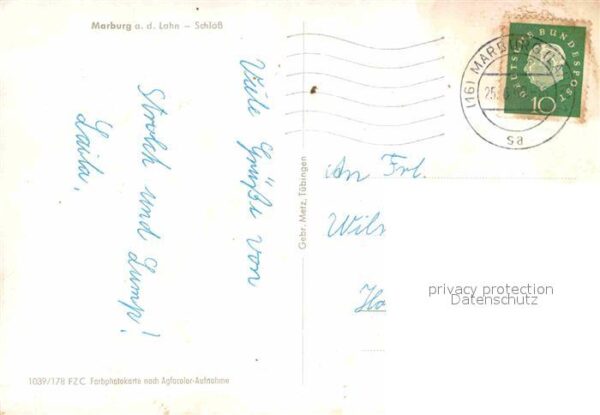 Marburg a. d. Lahn – Schloß
Viele Grüße von
Strolch und Lump!
Laila.
Gebr. Metz, Tübingen
1039/178 FZC Farbphotokarte nach Agfacolor-Aufnahme
DEUTSCHE BUNDESPOST
10
(16) MARBURG
25.
sa
An Frl.
Wil
Ho
privacy protection
Datenschutz